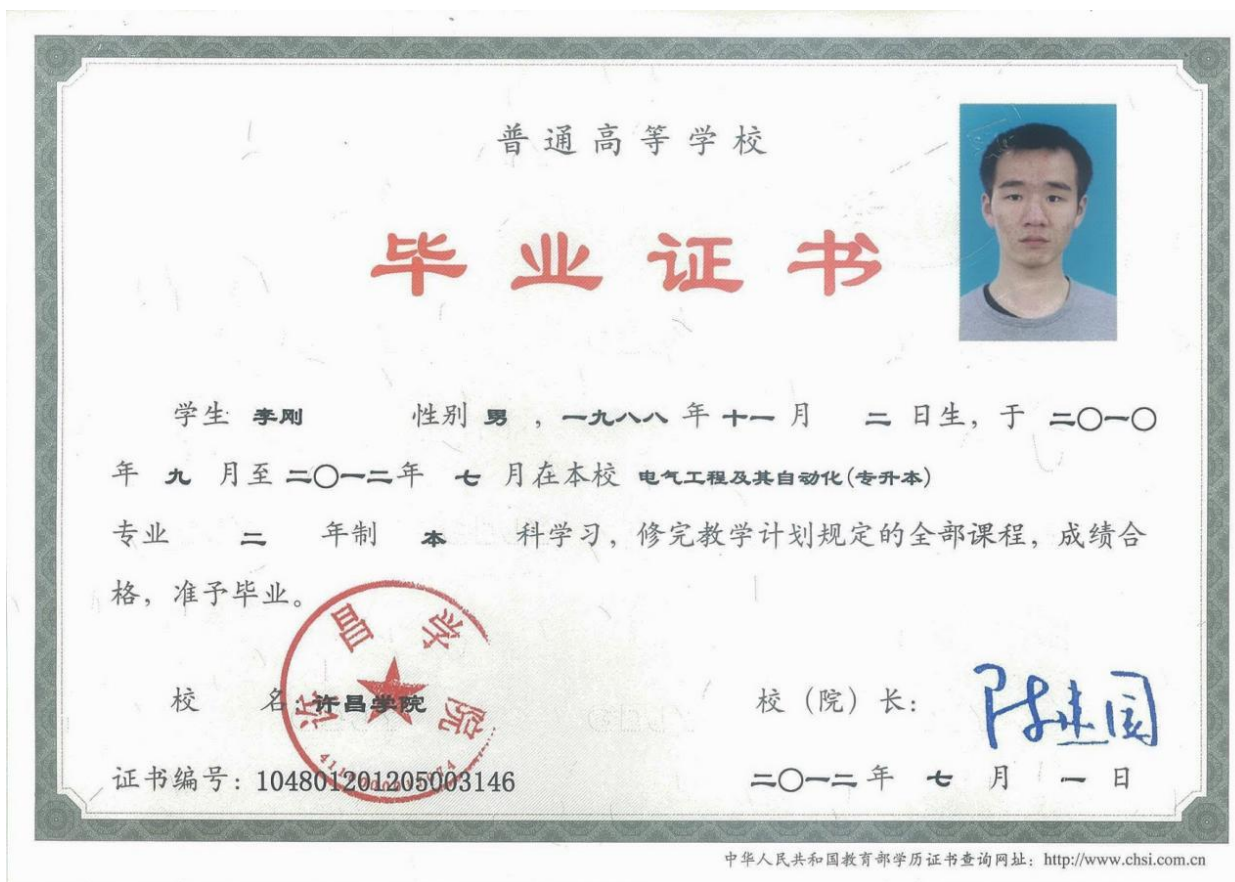 普通高等学校
毕业证书
学生 李刚 性别 男 ，一九八八 年 十一 月 二 日生，于 二〇一〇
年 九 月至 二〇一二年 七 月在本校 电气工程及其自动化(专升本)
专业 二 年制 本 科学习，修完教学计划规定的全部课程，成绩合
格，准予毕业。
许昌学院
校 名：许昌学院
校（院）长：
陈建国
证书编号：104801201205003146
二〇一二年 七 月 一 日
中华人民共和国教育部学历证书查询网址：http://www.chsi.com.cn